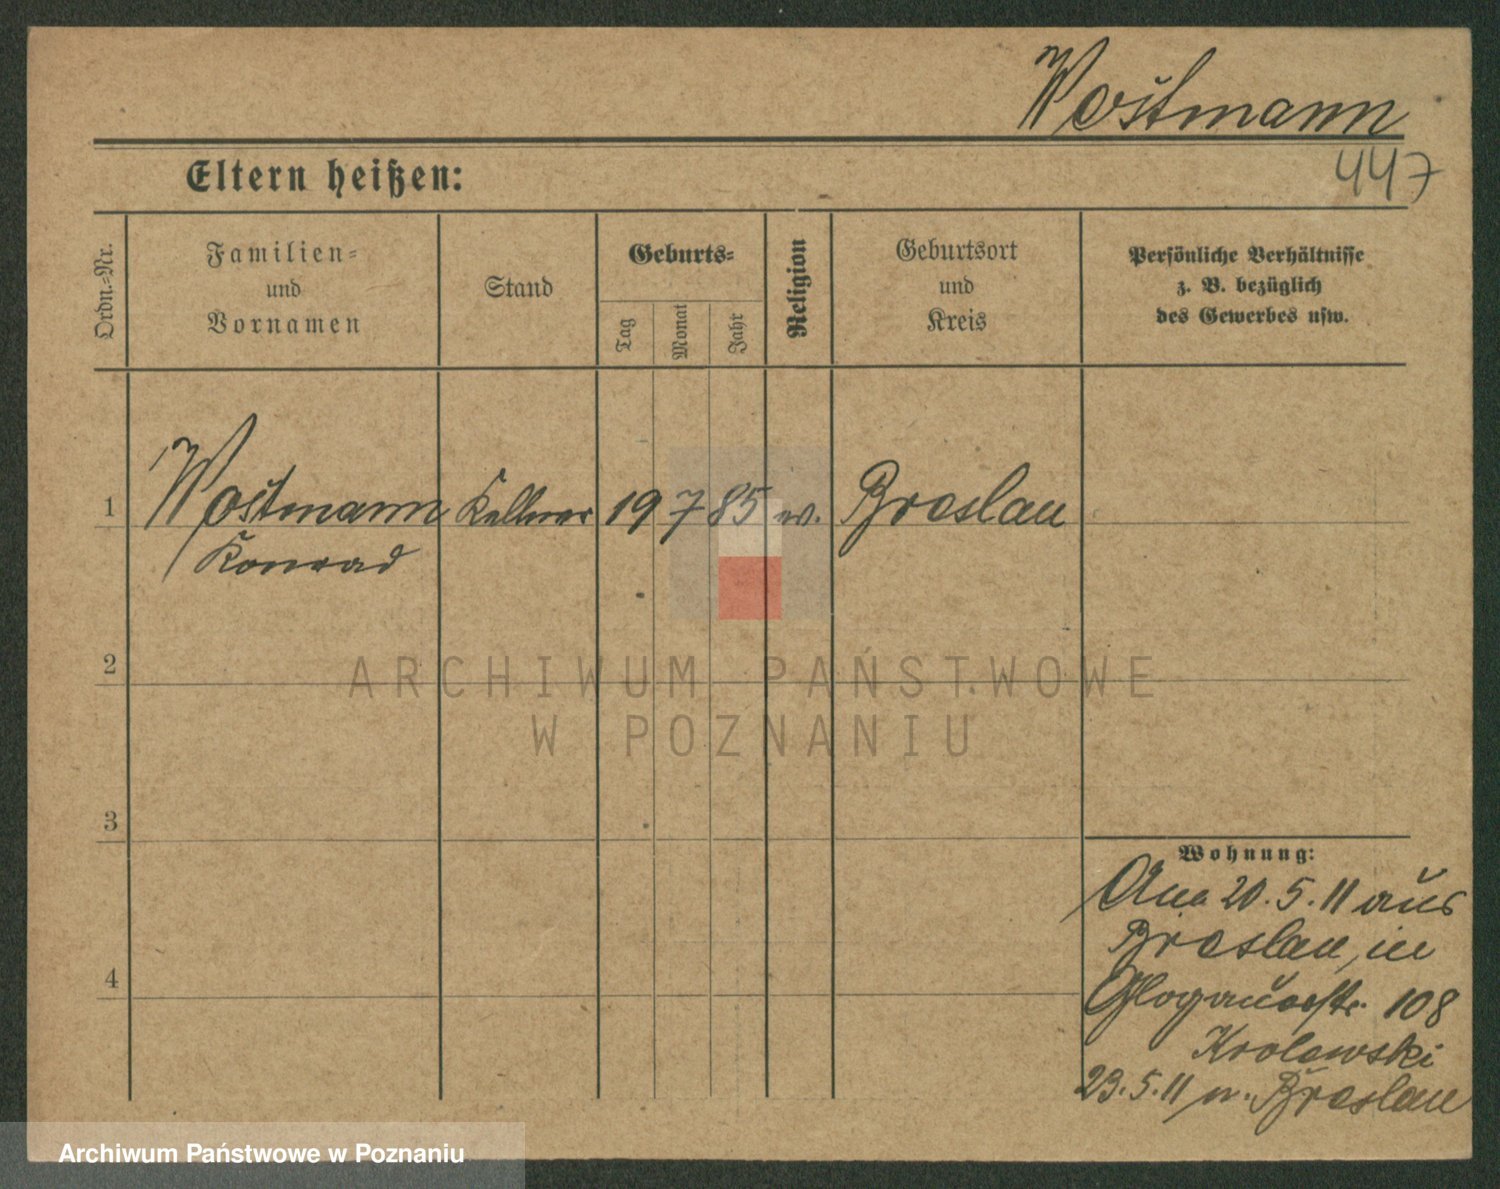 Wostmann
447
Eltern heißen:
Ordn.-Nr.
Familien-
und
Vornamen
Stand
Geburts-
Tag
Monat
Jahr
Religion
Geburtsort
und
Kreis
Persönliche Verhältnisse
z. B. bezüglich
des Gewerbes usw.
1 Wostmann Kellner 19 7 85 ev. Breslau
Konrad
2
3
4
Wohnung:
20.5.11 aus
Breslau, in
Glogauerstr. 108
Krolewski
23.5.11 n. Breslau
ARCHIWUM PAŃSTWOWE
W POZNANIU
Archiwum Państwowe w Poznaniu